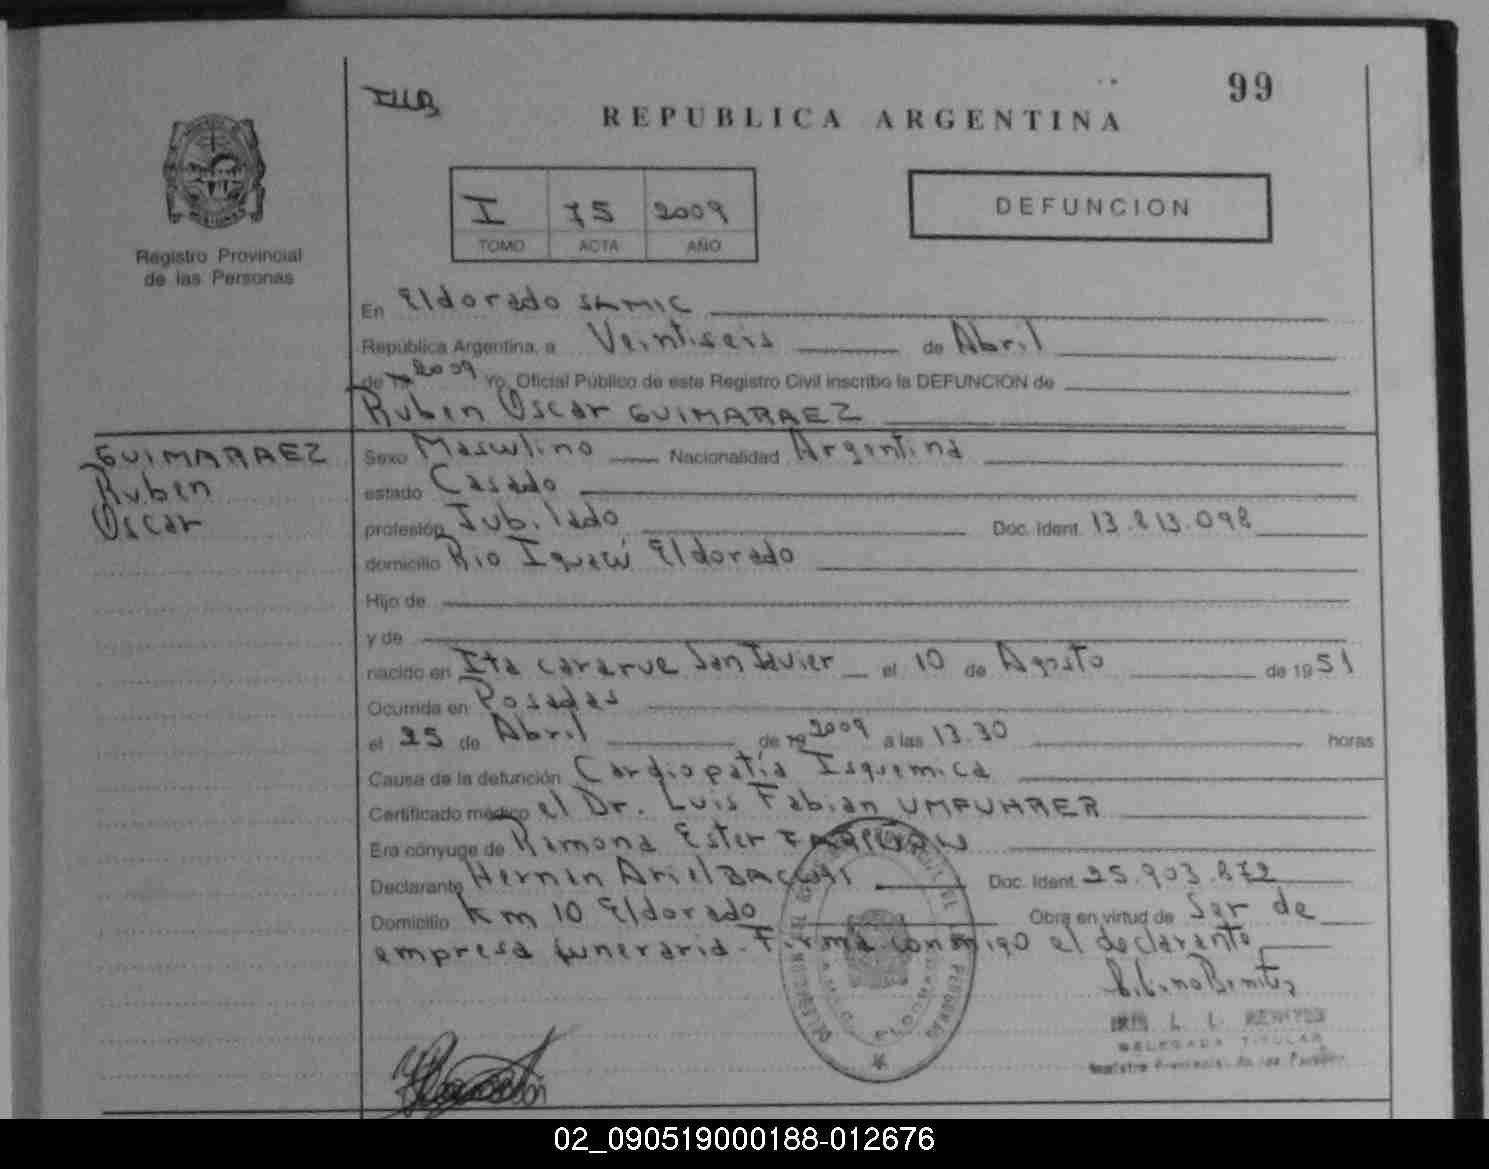 99
REPUBLICA ARGENTINA
I 75 2009
TOMO ACTA AÑO
DEFUNCION
Registro Provincial
de las Personas
En Eldorado SAMIC
República Argentina, a Veintiseis de Abril
de 19 2009 Yo, Oficial Público de este Registro Civil inscribo la DEFUNCION de
Ruben Oscar GUIMARAEZ
GUIMARAEZ
Ruben
Oscar
Sexo Masculino Nacionalidad Argentina
estado Casado
profesión Jubilado Doc. Ident. 13.813.098
domicilio Rio Iguazú Eldorado
Hijo de
y de
nacido en Ita cararue San Javier el 10 de Agosto de 1951
Ocurrida en Posadas
el 25 de Abril de 19 2009 a las 13.30 horas
Causa de la defunción Cardiopatía Isquemica
Certificado médico el Dr. Luis Fabian UMFUHRER
Era cónyuge de Ramona Ester
Declarante Hernen Ariel Doc. Ident. 25.903.872
Domicilio Km 10 Eldorado Obra en virtud de Ser de
empresa funeraria. Firma conmigo el declarante
L. L. BENITEZ
DELEGADA TITULAR
Registro Provincial de las Personas
02_090519000188-012676